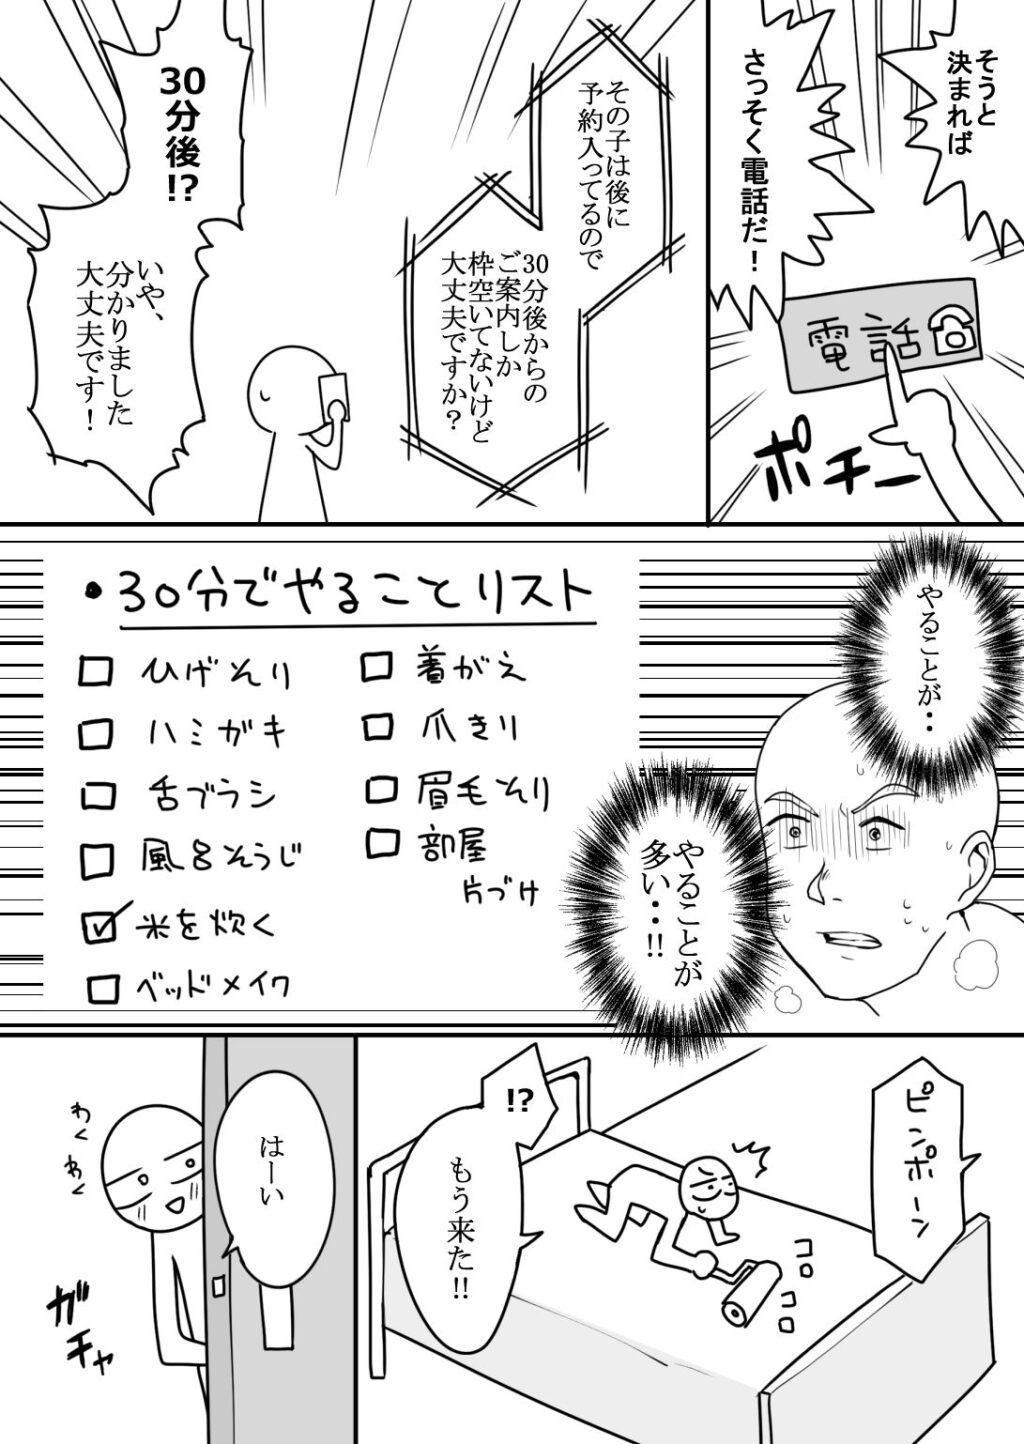 そうと
決まれば
さっそく電話だ！
電話
ポチー
その子は後に
予約入ってるので
30分後からの
ご案内しか
枠空いてないけど
大丈夫ですか？
30分後!?
いや、
分かりました
大丈夫です！
・30分でやることリスト
ひげそり
ハミガキ
舌ブラシ
風呂そうじ
米を炊く
ベッドメイク
着がえ
爪きり
眉毛そり
部屋
片づけ
やることが・・
やることが
多い・・!!
ピンポーン
コロ
コロ
!?
もう来た!!
はーい
わく
わく
ガチャ